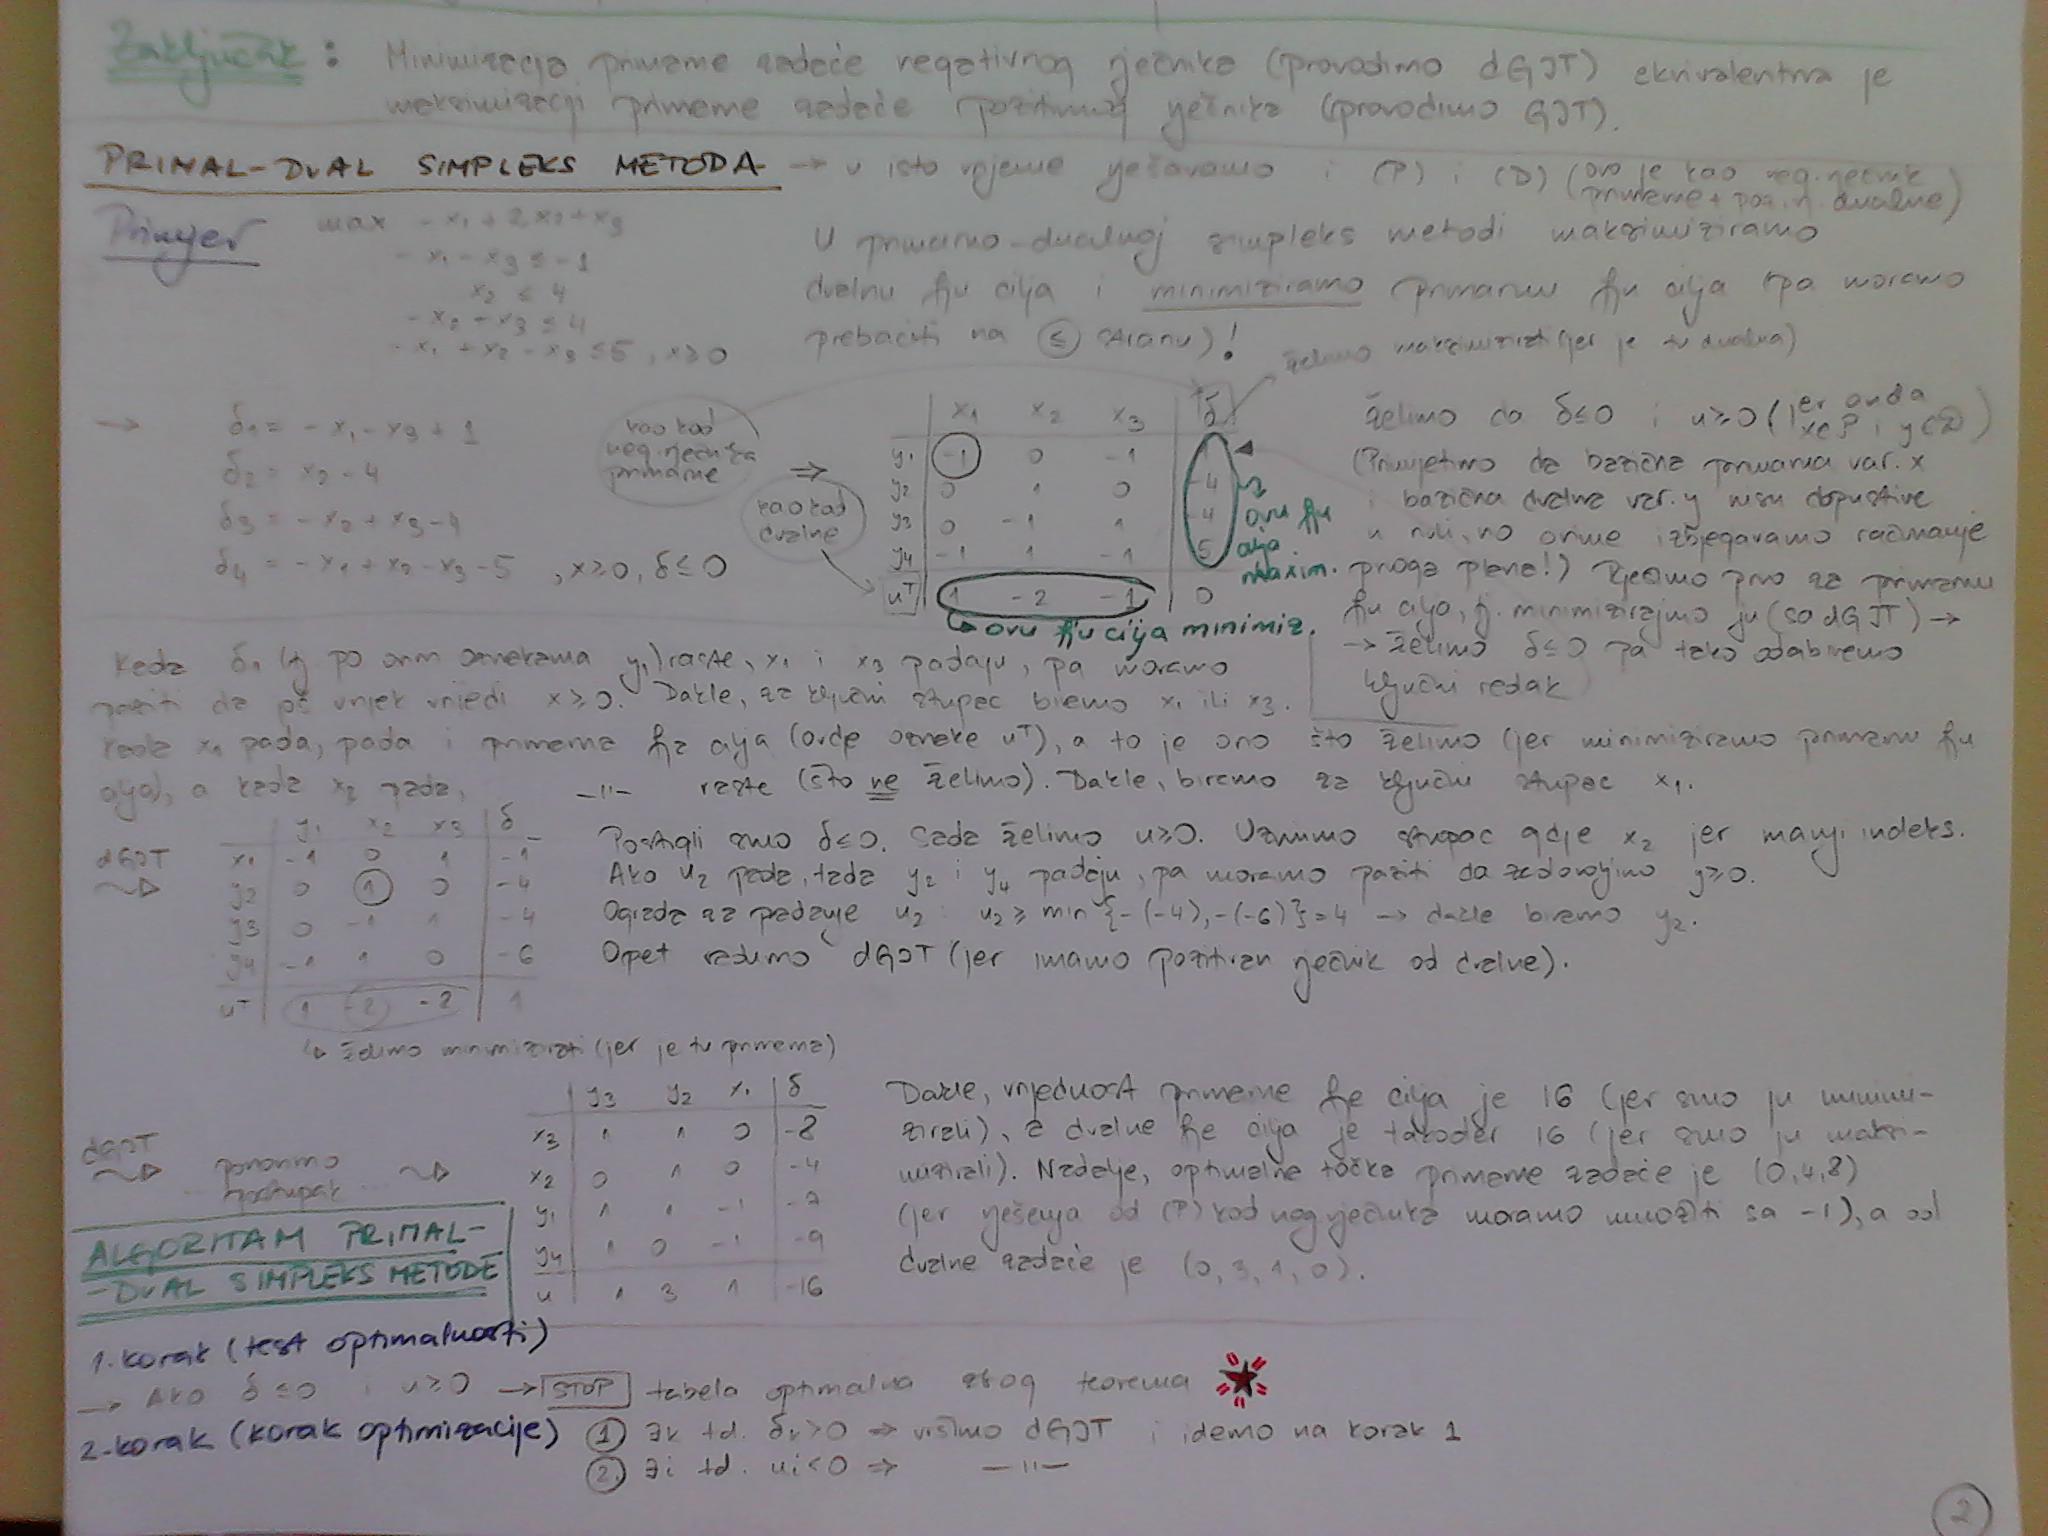 Zaključak: Minimizacija primarne zadaće negativnog rječnika (provodimo dGJT) ekvivalentna je
maksimizaciji primarne zadaće pozitivnog rječnika (provodimo GJT).
PRIMAL-DUAL SIMPLEKS METODA → u isto vrijeme rješavamo i (P) i (D) (ovo je kao neg. rječnik
primarne + poz. r. dualne)
Primjer max -x1 + 2x2 + x3
-x1 - x3 ≤ -1
x2 ≤ 4
-x2 + x3 ≤ 4
-x1 + x2 - x3 ≤ 5, x ≥ 0
U primarno-dualnoj simpleks metodi maksimiziramo
dualnu fju cilja i minimiziramo primarnu fju cilja (pa moramo
prebaciti na ≤ stranu)!
želimo maksimizirati (jer je tu dualna)
→ δ1 = -x1 - x3 + 1
δ2 = x2 - 4
δ3 = -x2 + x3 - 4
δ4 = -x1 + x2 - x3 - 5, x ≥ 0, δ ≤ 0
kao kod
neg. rječnika
primarne
kao kod
dualne
⇒
x1 x2 x3 δ
y1 -1 0 -1 1
y2 0 1 0 -4
y3 0 -1 1 -4
y4 -1 1 -1 -5
uT 1 -2 -1 0
ovu fju
cilja
maxim.
↳ ovu fju cilja minimiz.
želimo da δ≤0 i u≥0 (jer onda
x∈P i y∈D)
(Primjetimo da bazična primarna var. x
i bazična dualna var. y nisu dopustive
u nuli, no ovime izbjegavamo računanje
prvog plana!) Rješimo prvo za primarnu
fju cilja, tj. minimizirajmo ju (sa dGJT) →
→ želimo δ≤0 pa tako odabiremo
ključni redak
Kada δ1 (tj po ovim oznakama y1) raste, x1 i x3 padaju, pa moramo
paziti da još uvijek vrijedi x≥0. Dakle, za ključni stupac biramo x1 ili x3.
Kada x1 pada, pada i primarna fja cilja (ovdje oznake uT), a to je ono što želimo (jer minimiziramo primarnu fju
cilja), a kada x2 pada, —"— raste (što ne želimo). Dakle, biramo za ključni stupac x1.
dGJT
y1 x2 x3 δ
x1 -1 0 1 -1
y2 0 1 0 -4
y3 0 -1 1 -4
y4 -1 1 0 -6
uT 1 -2 -2 1
↳ želimo minimizirati (jer je tu primarna)
Postigli smo δ≤0. Sada želimo u≥0. Uzmimo stupac gdje x2 jer manji indeks.
Ako u2 pada, tada y2 i y4 padaju, pa moramo paziti da zadovoljimo y≥0.
Ograda za padanje u2: u2 ≥ min {-(-4), -(-6)} = 4 → dakle biramo y2.
Opet radimo dGJT (jer imamo pozitivan rječnik od dualne).
dGJT ... ponovimo
postupak ...
y3 y2 x1 δ
x3 1 1 0 -8
x2 0 1 0 -4
y1 1 1 -1 -7
y4 1 0 -1 -9
u 1 3 1 -16
Dakle, vrijednost primarne fje cilja je 16 (jer smo ju minimi-
zirali), a dualne fje cilja je također 16 (jer smo ju maksi-
mizirali). Nadalje, optimalna točka primarne zadaće je (0,4,8)
(jer rješenja od (P) kod neg rječnika moramo množiti sa -1), a od
dualne zadaće je (0, 3, 1, 0).
ALGORITAM PRIMAL-
-DUAL SIMPLEKS METODE
1. korak (test optimalnosti)
→ Ako δ≤0 i u≥0 → STOP tabela optimalna zbog teorema
2. korak (korak optimizacije) 1 ∃k td. δk>0 ⇒ vršimo dGJT i idemo na korak 1
2. ∃i td. ui<0 ⇒ —"—
2